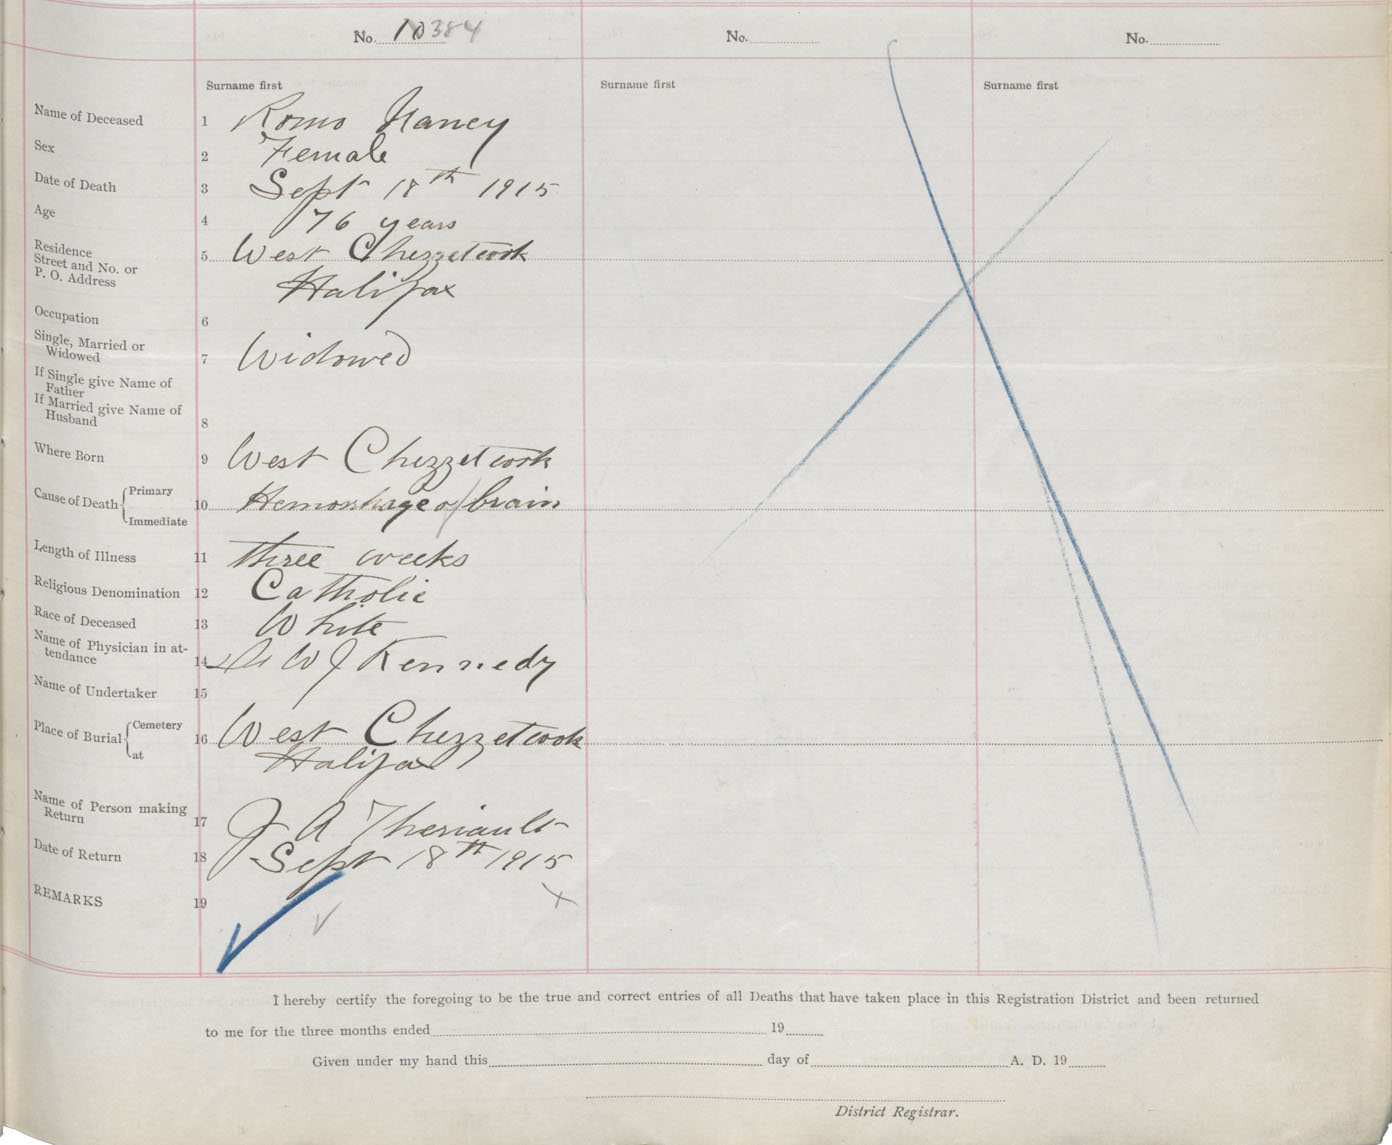 No. 10384 No. No.
Surname first Surname first Surname first
Name of Deceased 1 Romo Nancy
Sex 2 Female
Date of Death 3 Sept 18th 1915
Age 4 76 years
Residence
Street and No. or
P. O. Address 5 West Chezzetcook
Halifax
Occupation 6
Single, Married or
Widowed 7 Widowed
If Single give Name of
Father
If Married give Name of
Husband 8
Where Born 9 West Chezzetcook
Cause of Death Primary
Immediate 10 Hemorrhage of brain
Length of Illness 11 three weeks
Religious Denomination 12 Catholic
Race of Deceased 13 White
Name of Physician in at-
tendance 14 Dr W J Kennedy
Name of Undertaker 15
Place of Burial Cemetery
at 16 West Chezzetcook
Halifax
Name of Person making
Return 17 J A Theriault
Date of Return 18 Sept 18th 1915
REMARKS 19
I hereby certify the foregoing to be the true and correct entries of all Deaths that have taken place in this Registration District and been returned
to me for the three months ended 19
Given under my hand this day of A. D. 19
District Registrar.